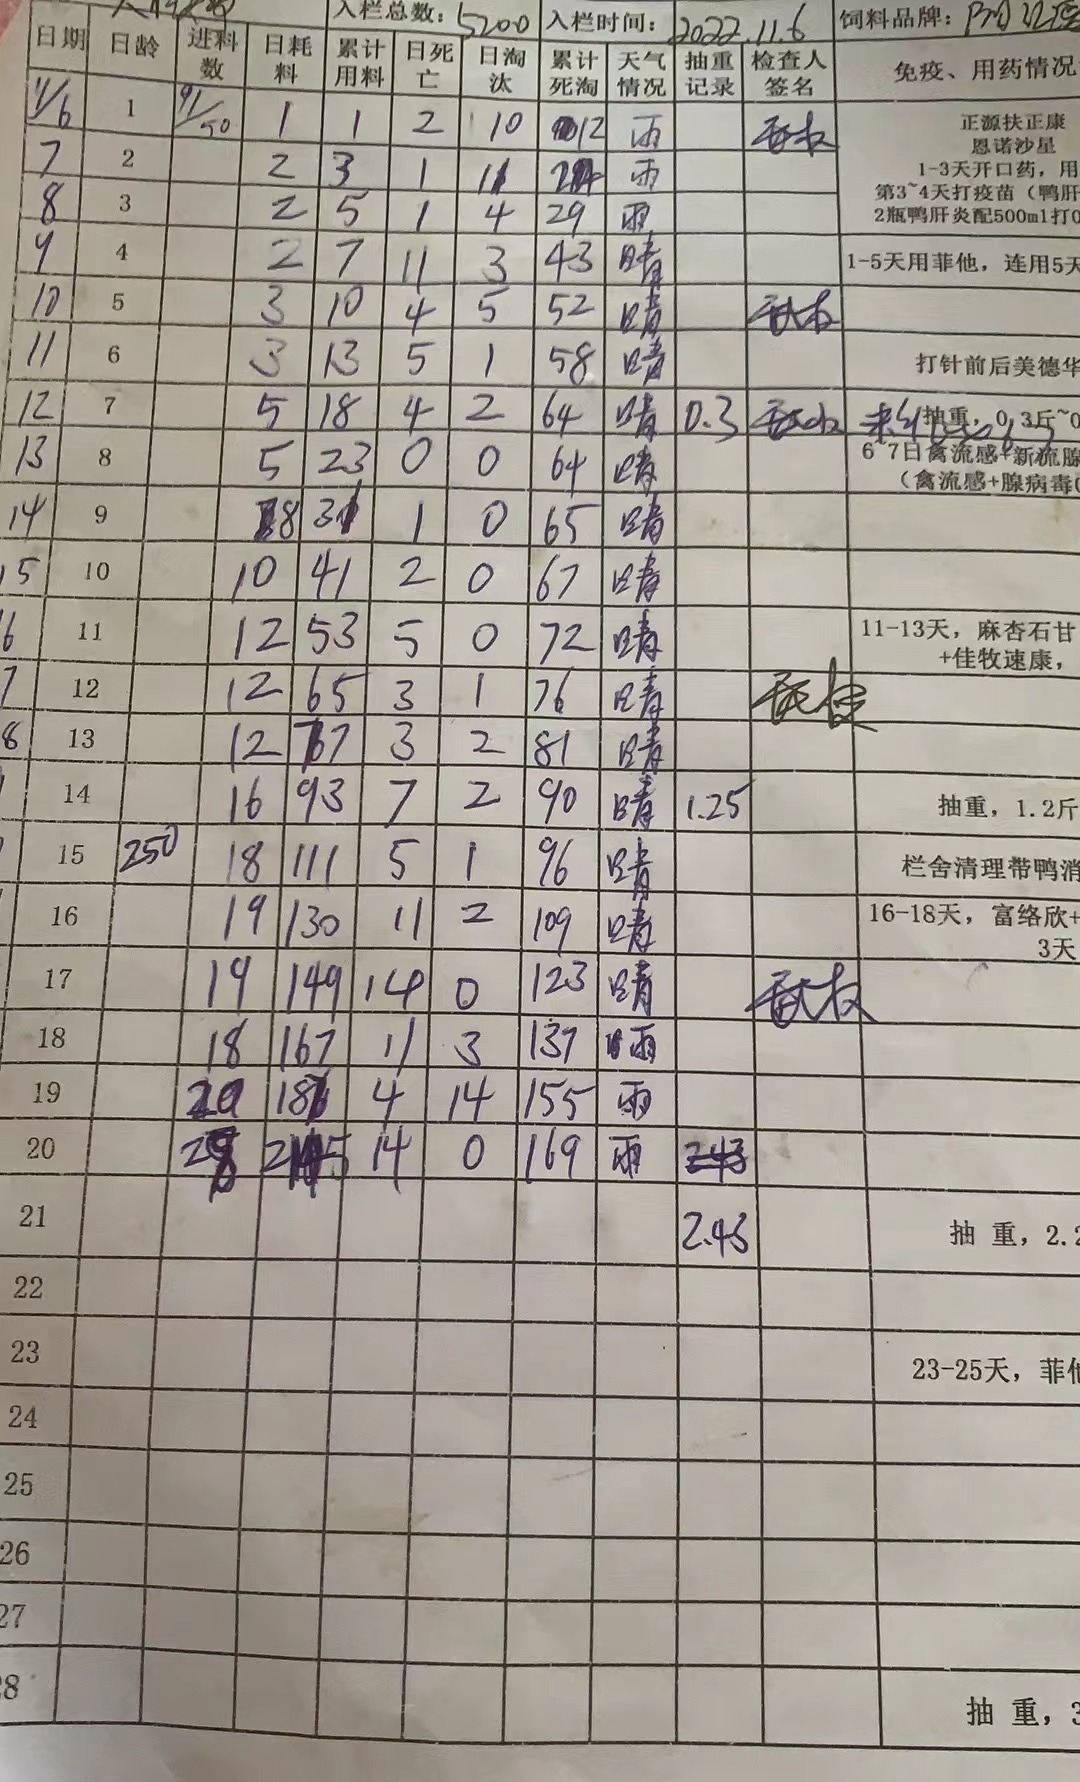 入栏总数: 5200 入栏时间: 2022.11.6 饲料品牌:
日期 日龄 进料数 日耗料 累计用料 日死亡 日淘汰 累计死淘 天气情况 抽重记录 检查人签名 免疫、用药情况
11/6 1 91/50 1 1 2 10 12 雨 正源扶正康
恩诺沙星
7 2 2 3 1 11 24 雨 1-3天开口药，用
8 3 2 5 1 4 29 雨 第3~4天打疫苗（鸭肝
2瓶鸭肝炎配500ml打0
9 4 2 7 11 3 43 晴 1-5天用菲他，连用5天
10 5 3 10 4 5 52 晴
11 6 3 13 5 1 58 晴 打针前后美德华
12 7 5 18 4 2 64 晴 0.3 抽重，0.3斤~0
13 8 5 23 0 0 64 晴 6~7日禽流感+新流腺
（禽流感+腺病毒0
14 9 8 31 1 0 65 晴
15 10 10 41 2 0 67 晴
6 11 12 53 5 0 72 晴 11-13天，麻杏石甘
+佳牧速康，
7 12 12 65 3 1 76 晴
8 13 12 77 3 2 81 晴
14 16 93 7 2 90 晴 1.25 抽重，1.2斤
15 250 18 111 5 1 96 晴 栏舍清理带鸭消
16 19 130 11 2 109 晴 16-18天，富络欣+
3天
17 19 149 14 0 123 晴
18 18 167 11 3 137 雨
19 4 14 155 雨
20 14 0 169 雨 2.43
21 2.43 抽 重，2.2
22
23 23-25天，菲他
24
25
26
27
28 抽 重，3